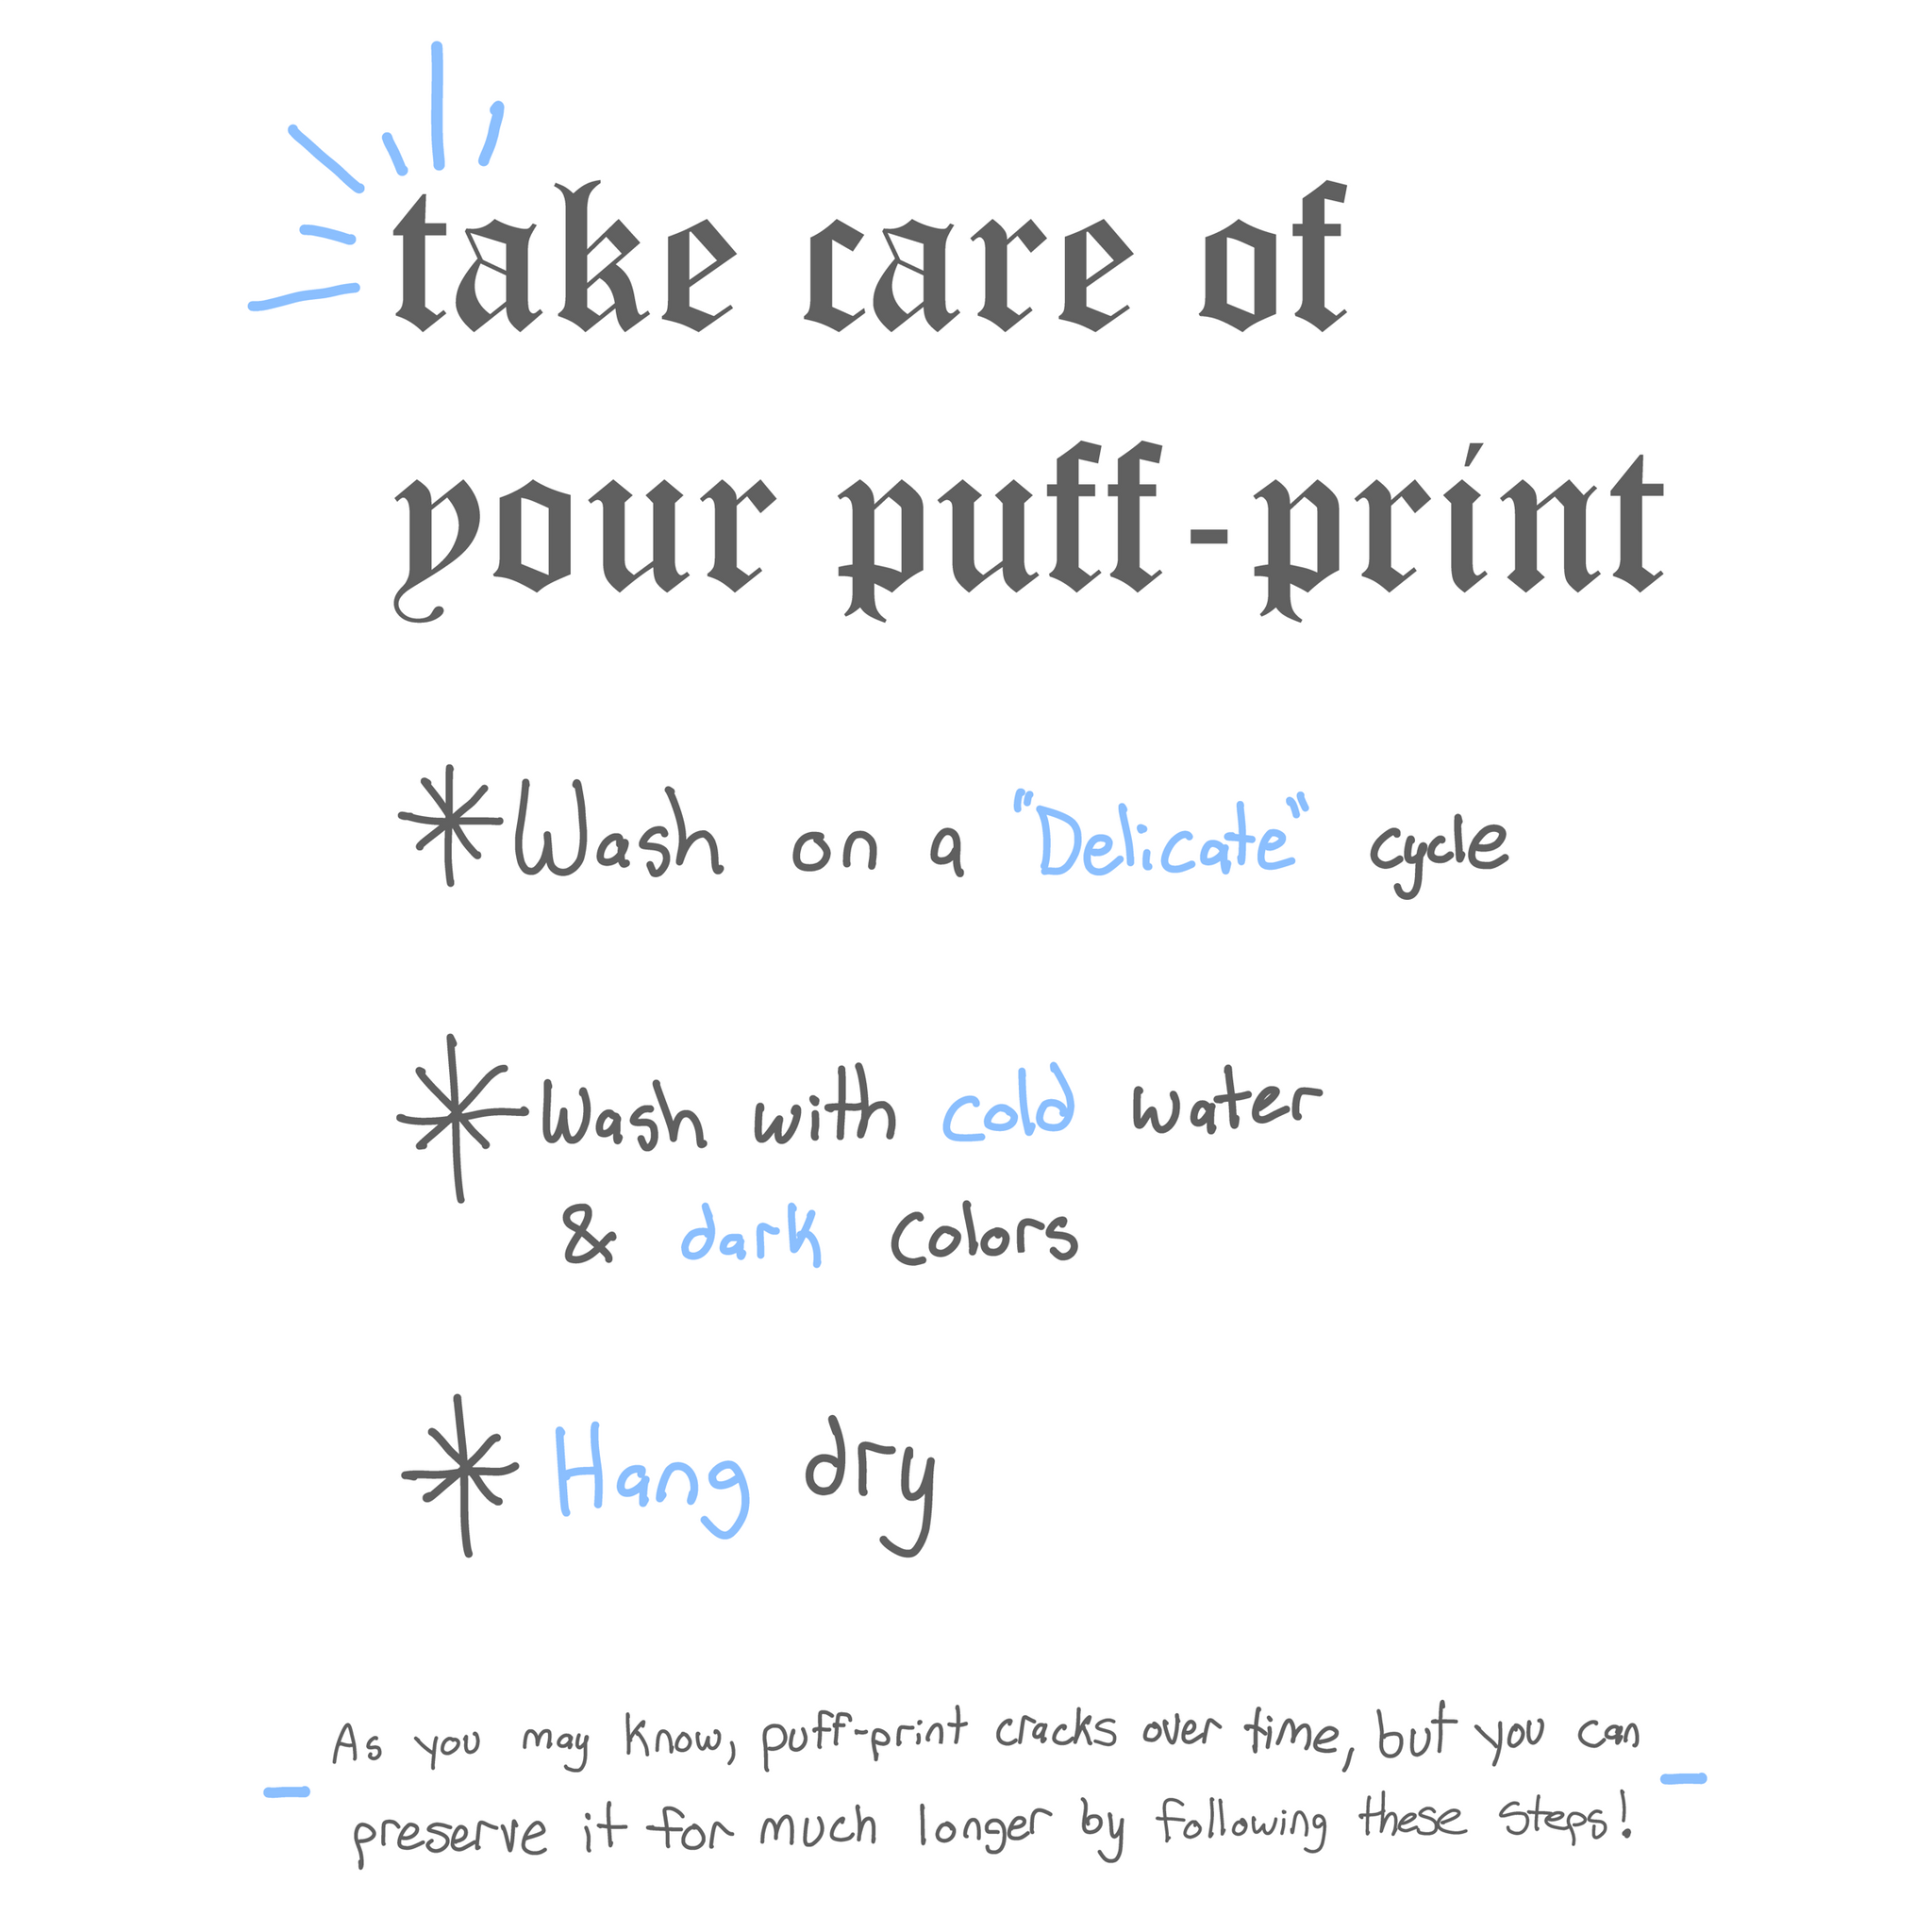 take care of
your puff-print
*Wash on a "Delicate" cycle
* Wash with cold water
& dark colors
* Hang dry
As you may know, puff-print cracks over time, but you can
preserve it for much longer by following these steps!